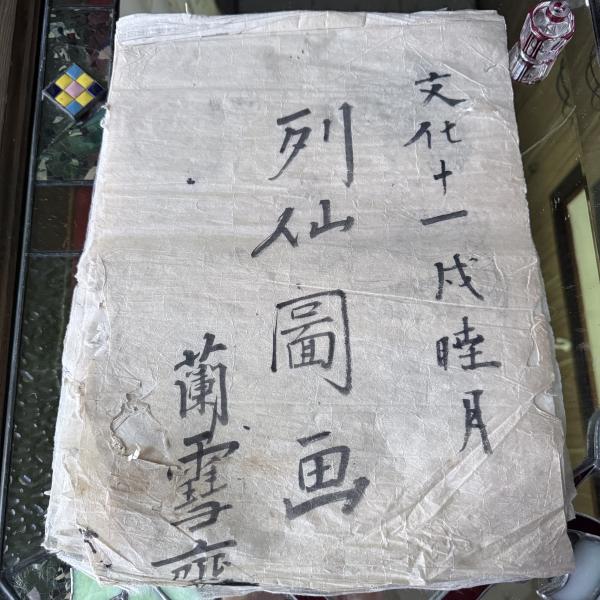 文化十一戌睦月
列仙圖画
蘭雪齊